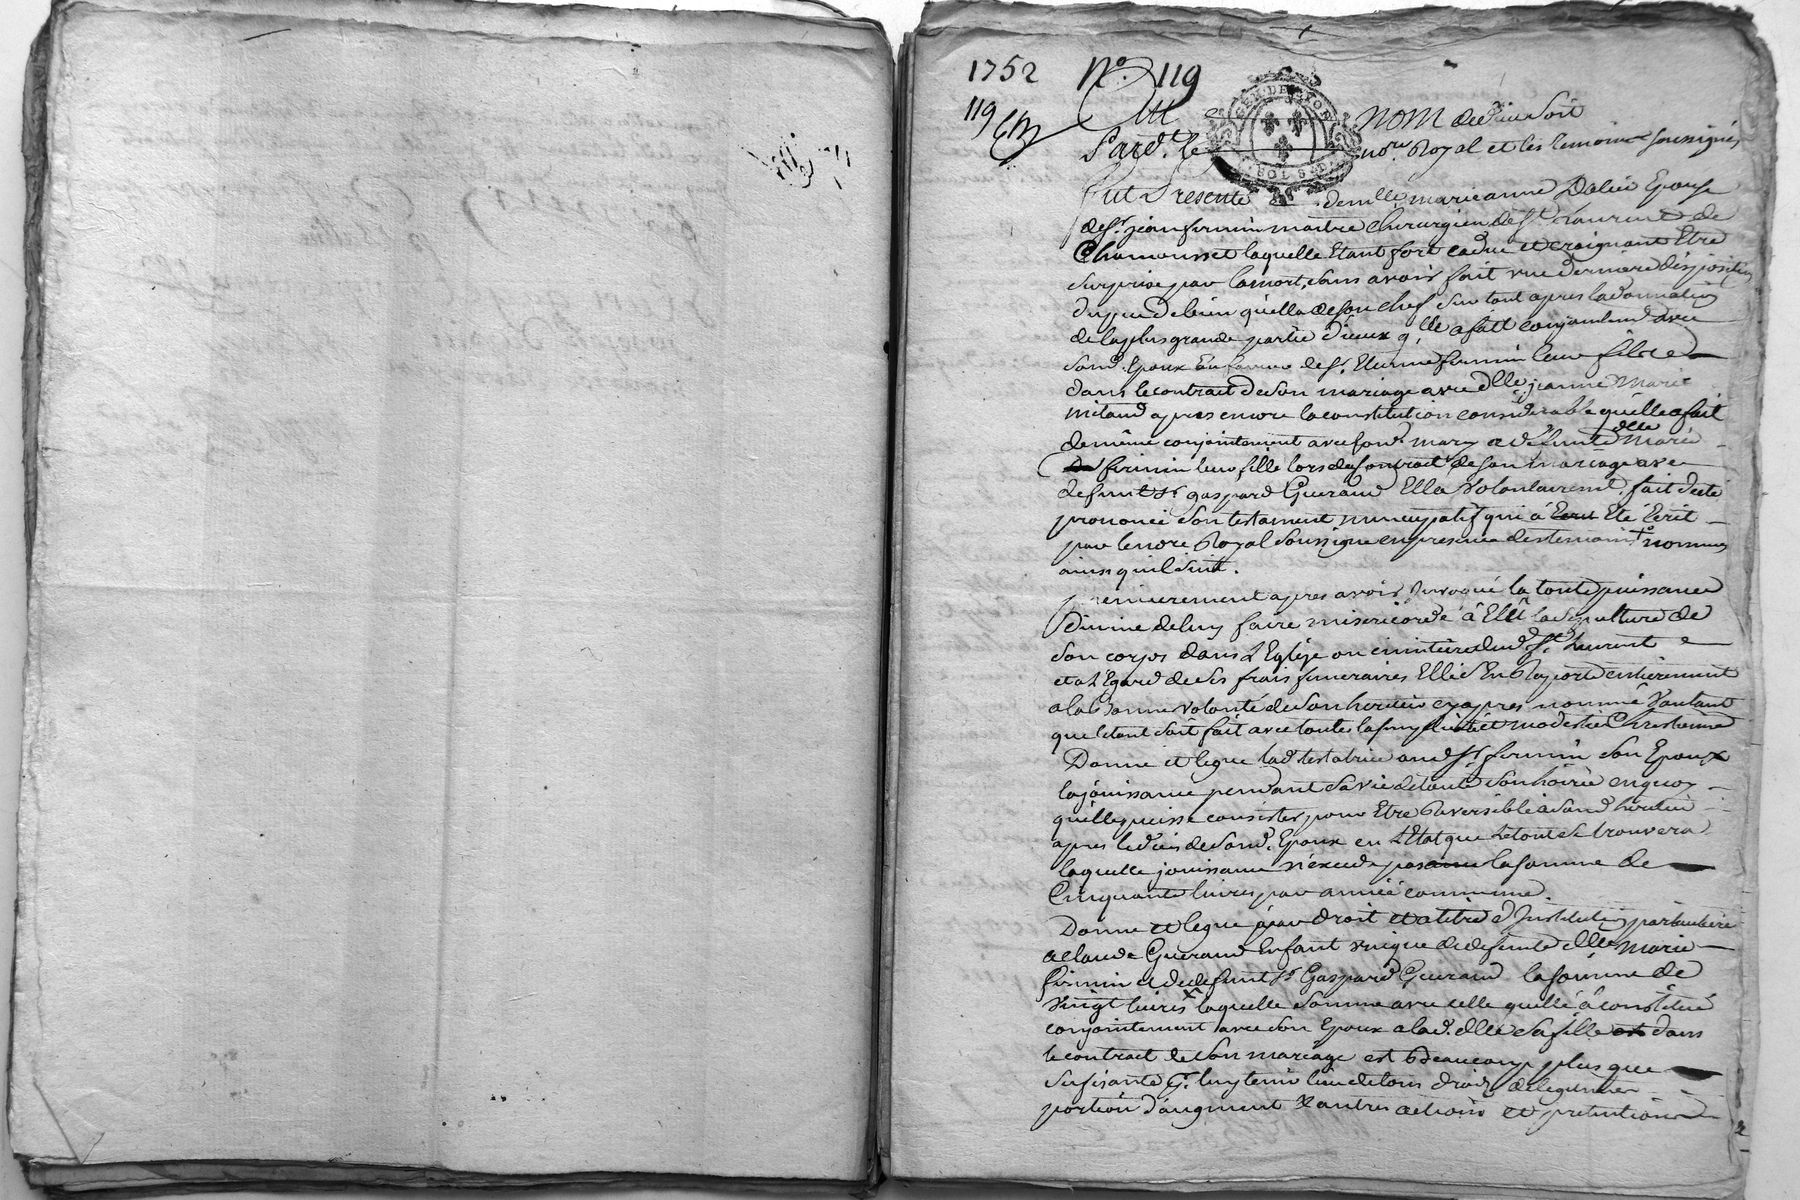 1752 N.º 119
119
GEN. DE LYON
SOLS
nom de dieu soit
Pard.t le nore. Royal et les temoins soussignés
fut Presente demlle marieanne Epouse
de sr. jean firmin maitre chirurgien de st. Laurent de
Chamousset laquelle Etant fort caduc et craignant Etre
surprise par la mort, sans avoir fait une derniere disposition
du peu de bien quelle a de son chef sur tout apres la donnation
de la plus grande partie d'iceux q'lle a fait conjointemt avec
sond. Epoux en faveur de sr. Etienne firmin leur fils et
dans le contrat de son mariage avec dlle. jeanne Marie
Milaud apres encore la constitution considerable qu'elle a fait
de même conjointement avec sond. mary a defunte dlle Marie
firmin leur fille lors du contrat de son mariage avec
defunt sr. gaspard Gueraud Ella volontairemt. fait dicté
prononcé son testament nuncupatif qui á Eté Ecrit
par le nore Royal soussigné en presence des temoins nommes
ainsi quil suit.
premierement apres avoir invoqué la toute puissance
Divine de luy faire misericorde á Elû la sepulture de
son corps dans L'Eglize ou cimitiere dud st. Laurent e
et a L'Egard de ses frais funeraires Elle s'En Raporte entierement
a la bonne volonté de son heritier cy apres nommé Voulant
que le tout soit fait avec toute la simplicité et modestie Chrestienne
Donne et legue lad testatrice aud sr firmin son Epoux
la jouissance pendant sa vie de toute son hoirie en quoy
qu'elle puisse consister pour Etre Reversible a sond heritier
apres le deces de sond. Epoux en L'Etat que le tout se trouvera
laquelle jouissance n'excede pas la somme de
Cinquante livres par année commune
Donne et legue par droit et a titre d'Institution particuliere
a claude Gueraud Enfant unique de defunte dlle Marie
firmin et de defunt sr. Gaspard Gueraud la somme de
Vingt livres laquelle somme avec celle quelle á constitué
conjointement avec son Epoux a lad. dlle sa fille dans
le contrat de son mariage est Beaucoup plus que
sufisante p.r luy tenir lieu de tous droits de legitime
portion d'augment & autres actions et pretentions